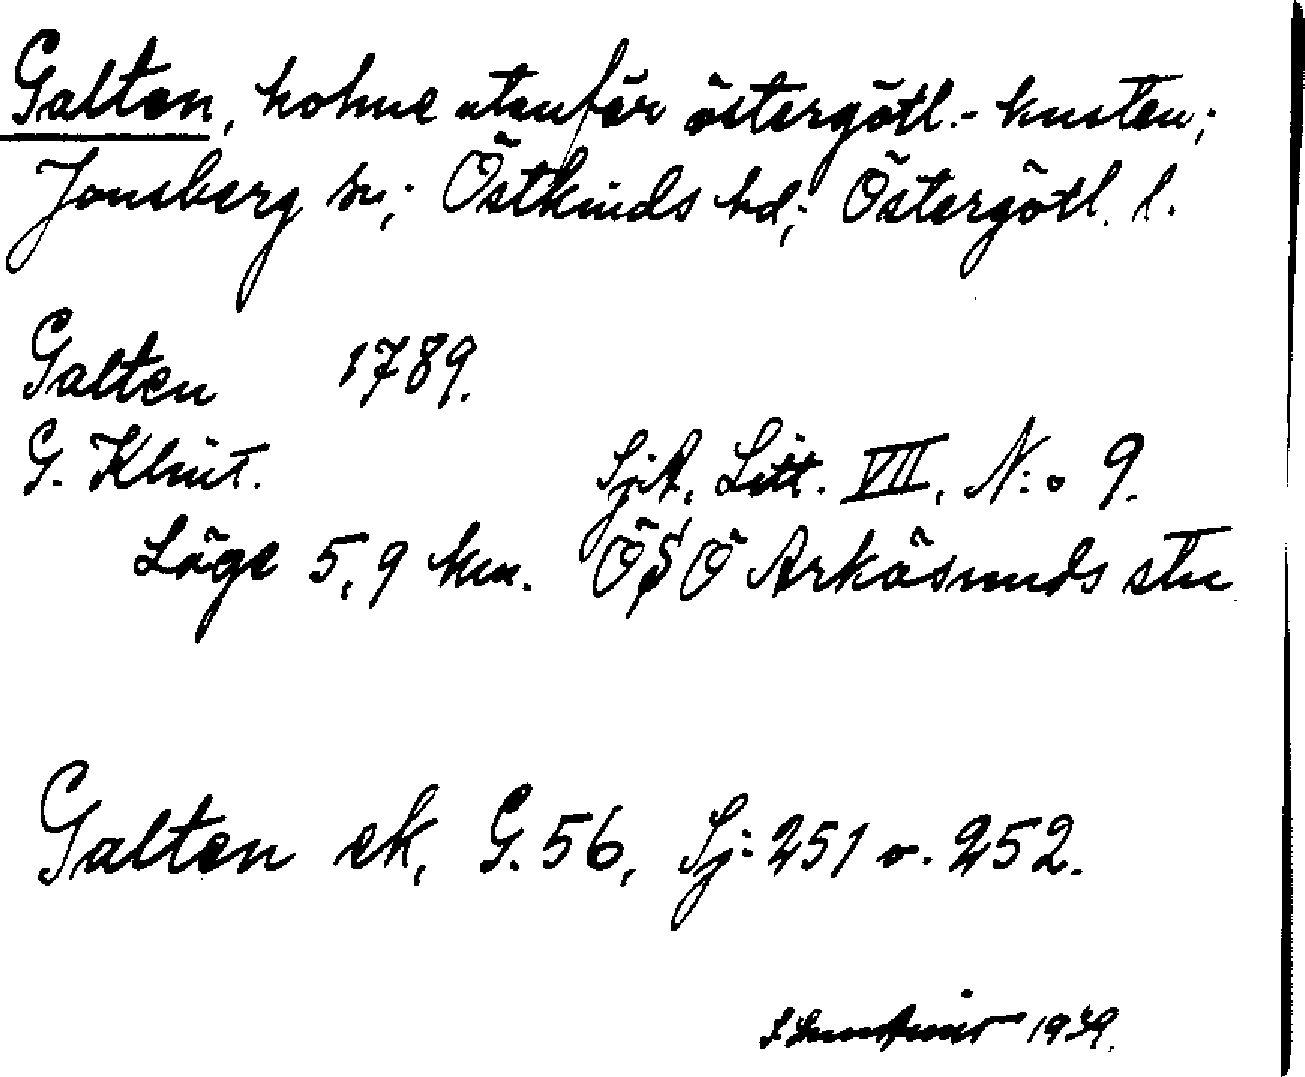 Galten, holme utanför östergötl.-kusten;
Jonsberg sn; Östkinds hd; Östergötl. l.
Galten 1789.
G. Klint. SjA, Litt. VII, N:o 9.
Läge 5,9 km. ÖSÖ Arkösunds stn
Galten ek, G. 56, Sj: 251 o. 252.
1939.